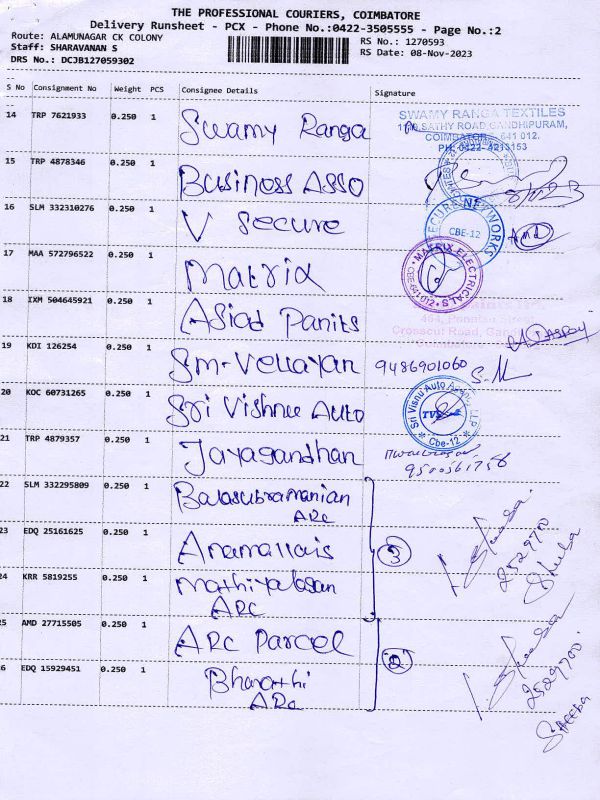 THE PROFESSIONAL COURIERS, COIMBATORE
Delivery Runsheet - PCX - Phone No.:0422-3505555 - Page No.:2
Route: ALAMUNAGAR CK COLONY
Staff: SHARAVANAN S
DRS No.: DCJB127059302
RS No.: 1270593
RS Date: 08-Nov-2023
S No Consignment No Weight PCS Consignee Details Signature
14 TRP 7621933 0.250 1 Swamy Ranga
SWAMY RANGA TEXTILES
SATHY ROAD, GANDHIPURAM,
COIMBATORE - 641 012.
PH: 0422-4213153
15 TRP 4878346 0.250 1 Business Asso
16 SLM 332310276 0.250 1 V Secure
SECURE NETWORKS
CBE-12
17 MAA 572796522 0.250 1 Matrix
MATRIX ELECTRICALS
CBE-641 012
18 IXM 504645921 0.250 1 Asiad Panits
Crosscut Road,
19 KDI 126254 0.250 1 Sm-Vellayan 9486901060 S.M
20 KOC 60731265 0.250 1 Sri Vishnu Auto
Sri Visnu Auto LLP
TVS
Cbe-12
21 TRP 4879357 0.250 1 Jayagandhan
9500561758
22 SLM 332295809 0.250 1 Balasubramanian
ARC
23 EDQ 25161625 0.250 1 Anamallais
3
24 KRR 5819255 0.250 1 Mathiyalagan
ARC
2529700
Sheeba
25 AMD 27715505 0.250 1 ARC Parcel
2
26 EDQ 15929451 0.250 1 Bharathi
ARC
2529700
SHEEBA